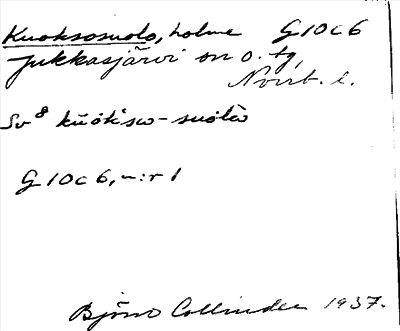 Kuoksosuolo, holme G10c6
Jukkasjärvi sn o. tg,
Norrb. l.
Sv 8 kuoksu-suolu
G10c6, n:r 1
Björn Collinder 1937.